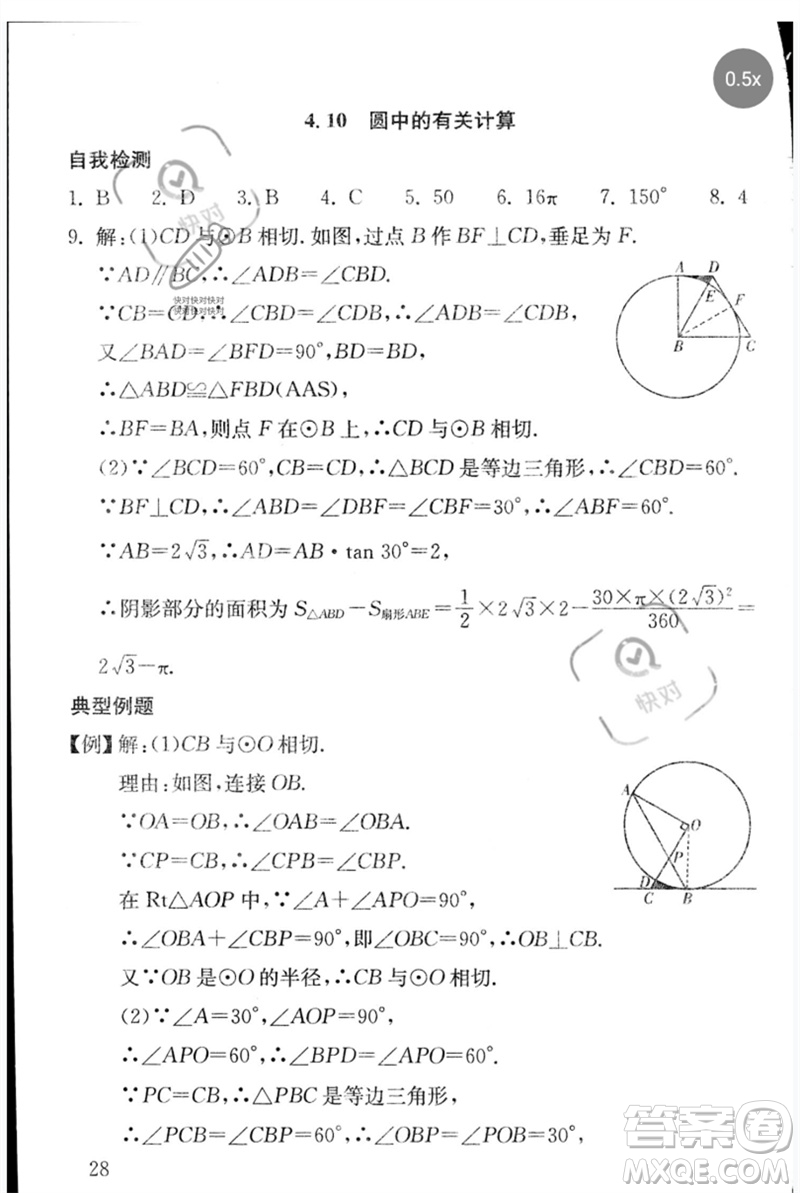 0.5x
4.10 圆中的有关计算
自我检测
1. B 2. D 3. B 4. C 5. 50 6. 16π 7. 150° 8. 4
9. 解:(1)CD与⊙B相切.如图,过点B作BF⊥CD,垂足为F.
∵AD∥BC,∴∠ADB=∠CBD.
∵CB=CD,∴∠CBD=∠CDB,∴∠ADB=∠CDB,
又∠BAD=∠BFD=90°,BD=BD,
∴△ABD≌△FBD(AAS),
∴BF=BA,则点F在⊙B上,∴CD与⊙B相切.
(2)∵∠BCD=60°,CB=CD,∴△BCD是等边三角形,∴∠CBD=60°.
∵BF⊥CD,∴∠ABD=∠DBF=∠CBF=30°,∴∠ABF=60°.
∵AB=2√3,∴AD=AB·tan 30°=2,
∴阴影部分的面积为S△ABD-S扇形ABE=1/2×2√3×2-30×π×(2√3)²/360=
2√3-π.
典型例题
【例】解:(1)CB与⊙O相切.
理由:如图,连接OB.
∵OA=OB,∴∠OAB=∠OBA.
∵CP=CB,∴∠CPB=∠CBP.
在Rt△AOP中,∵∠A+∠APO=90°,
∴∠OBA+∠CBP=90°,即∠OBC=90°,∴OB⊥CB.
又∵OB是⊙O的半径,∴CB与⊙O相切.
(2)∵∠A=30°,∠AOP=90°,
∴∠APO=60°,∴∠BPD=∠APO=60°.
∵PC=CB,∴△PBC是等边三角形,
∴∠PCB=∠CBP=60°,∴∠OBP=∠POB=30°,
28
A D
E F
B C
A
O
P
D
C B
快对
快对快对快对
快对快对快对
快对
答案卷
MXQE.COM